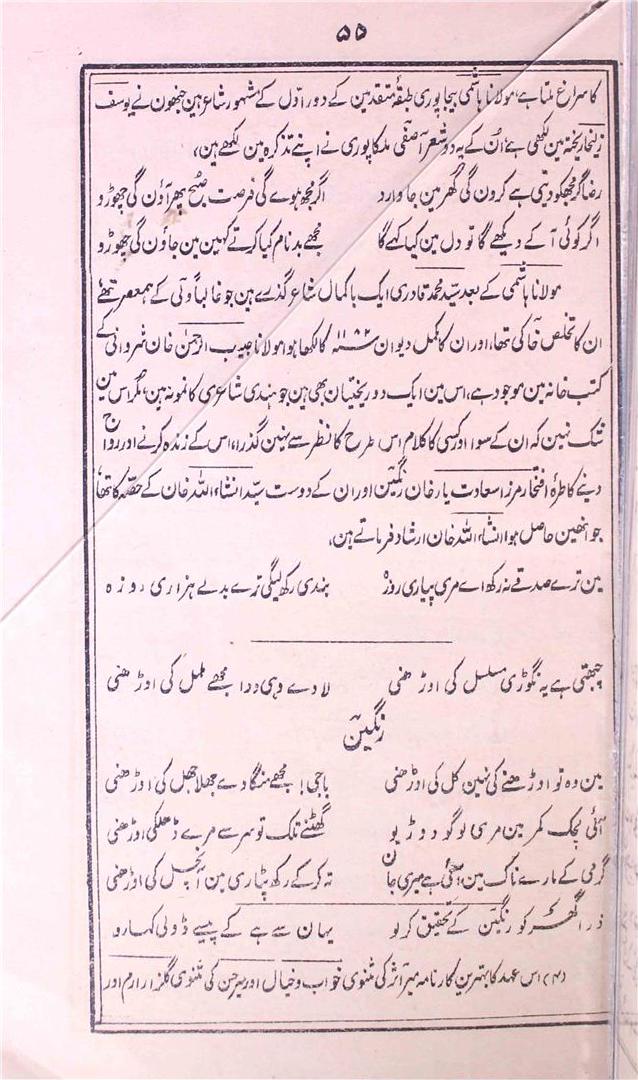 ۵۵
کا سراغ ملتا ہے، مولانا ہاشمی بیجاپوری طبقۂ متقدمین کے دور اوّل کے مشہور شاعر ہین جنھون نے یوسف
زلیخا ریختہ مین لکھی ہے، اُن کے یہ دو شعر آصفی ملکاپوری نے اپنے تذکرہ مین لکھے ہین،
رضا گر مجھکو دیتی ہے کرون گی گھر مین جا وارد اگر مجھ ہوے گی فرصت صبح پھر آؤن گی چھوڑو
اگر کوئی آ کے دیکھے گا تو دل مین کیا کہے گا مجھے بدنام کیا کرتے کہین مین جاؤن گی چھوڑو
مولانا ہاشمی کے بعد سید محمد قادری ایک باکمال شاعر گذرے ہین جو غالباً ولی کے ہمعصر تھے
ان کا تخلص خاکی تھا، اور ان کا مکمل دیوان ۱۱۸۲ سنہ کا لکھا ہوا مولانا حبیب الرحمٰن خان شروانی کے
کتب خانہ مین موجود ہے، اس مین ایک دو ریختیان بھی ہین جو ہندی شاعری کا نمونہ ہین، مگر اس مین
شک نہین کہ ان کے سوا اور کسی کا کلام اس طرح کا نظر سے نہین گذرا، اس کے زندہ کرنے اور رواج
دینے کا طرۂ افتخار مرزا سعادت یار خان رنگین اور ان کے دوست سید انشاء اللہ خان کے حصّہ کا تھا
جو انھین حاصل ہوا، انشاء اللہ خان ارشاد فرماتے ہین،
مین ترے صدقے نہ رکھ اے مری پیاری روزہ بندی رکھ لیگی ترے بدلے ہزاری روزہ
چبھتی ہے یہ نگوڑی مسلسل کی اوڑھنی لا دے وہی ددا مجھے ململ کی اوڑھنی
رنگین
مین وہ تو اوڑھنے کی نہین کل کی اوڑھنی باجی! مجھے منگا دے چھلاجھل کی اوڑھنی
آئی لچک کمر مین مری لوگو دوڑیو گھٹنے تک تو سر سے مرے ڈھلکی اوڑھنی
گرمی کے مارے ناک مین آئی ہے میری جان تہ کر کے رکھ پٹاری مین آنچل کی اوڑھنی
ذرا گھر کو رنگین کے تحقیق کر لو یہان سے ہے کے پیسے ڈولی کہارو
(۴) اس عہد کا بہترین کارنامہ میر اثر کی مثنوی خواب و خیال اور میر حسن کی مثنوی گلزار ارم اور